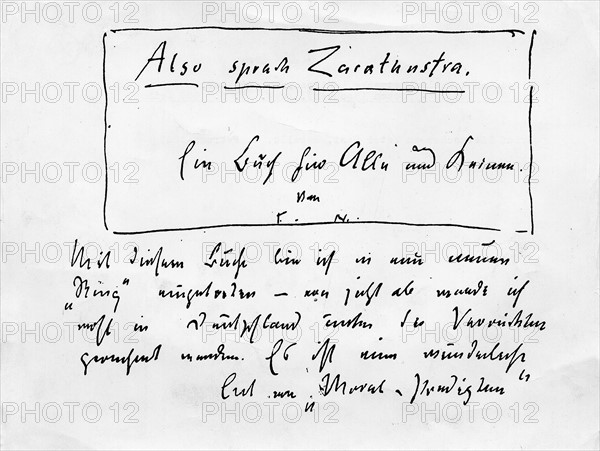 Also sprach Zarathustra.
Ein Buch für Alle und Keinen.
Von
F. N.
Mit diesem Buche bin ich in einen neuen
"Ring" eingetreten — von jetzt ab werde ich
wohl in Deutschland unter die Verrückten
gerechnet werden. Es ist eine wunderliche
Art von "Moral-Predigten"